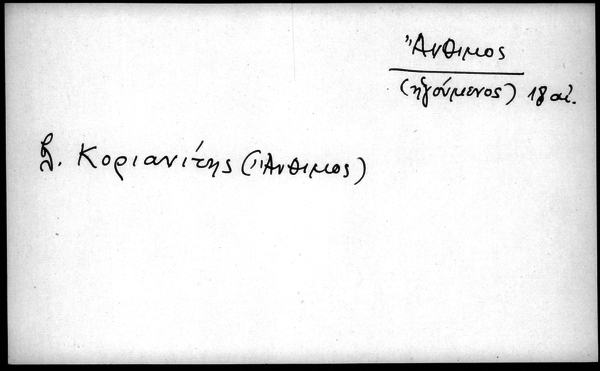 Ἄνθιμος
(ἡγούμενος) 18 αἰ.
β. Κοριανίτης (Ἄνθιμος)